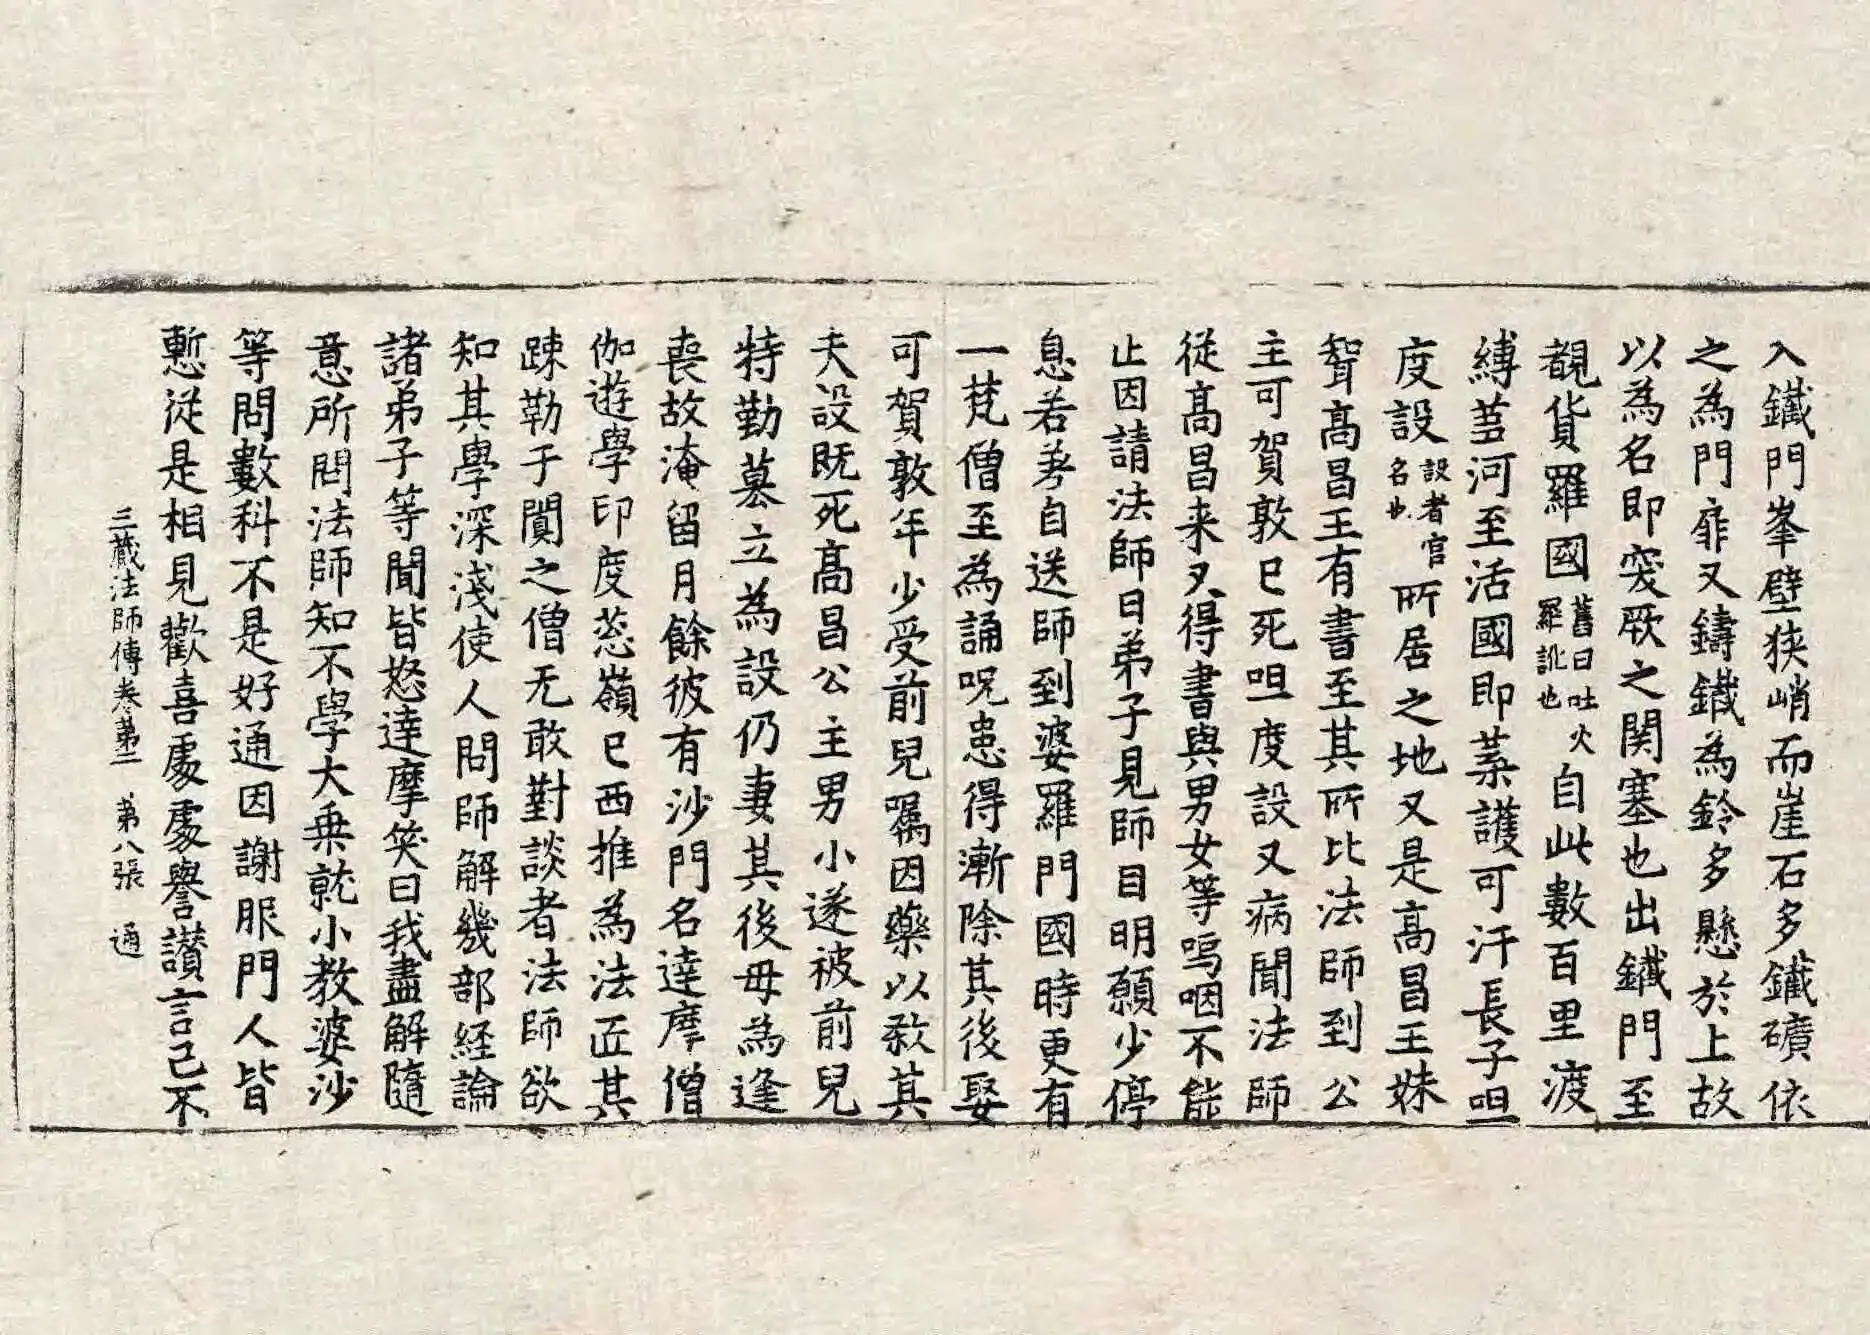 入鐵門峯壁狹峭而崖石多鐵礦依
之為門扉又鑄鐵為鈴多懸於上故
以為名即突厥之関塞也出鐵門至
覩貨羅國舊曰吐火羅訛也自此數百里渡
縛芻河至活國即葉護可汗長子呾
度設設者官名也所居之地又是高昌王妹
聟高昌王有書至其所比法師到公
主可賀敦已死呾度設又病聞法師
從髙昌来又得書與男女等嗚咽不能
止因請法師曰弟子見師目明願少停
息若差自送師到婆羅門國時更有
一梵僧至為誦呪患得漸除其後娶
可賀敦年少受前兒囑因藥以殺其
夫設既死高昌公主男小遂被前兒
特勤篡立為設仍妻其後母為逢
喪故淹留月餘彼有沙門名達摩僧
伽遊學印度葱嶺已西推為法匠其
踈勒于闐之僧无敢對談者法師欲
知其學深淺使人問師解幾部経論
諸弟子等聞皆怒達摩笑曰我盡解隨
意所問法師知不學大乗就小教婆沙
等問數科不是好通因謝服門人皆
慙従是相見歡喜處處譽讃言己不
三藏法師傳卷第二 第八張 通